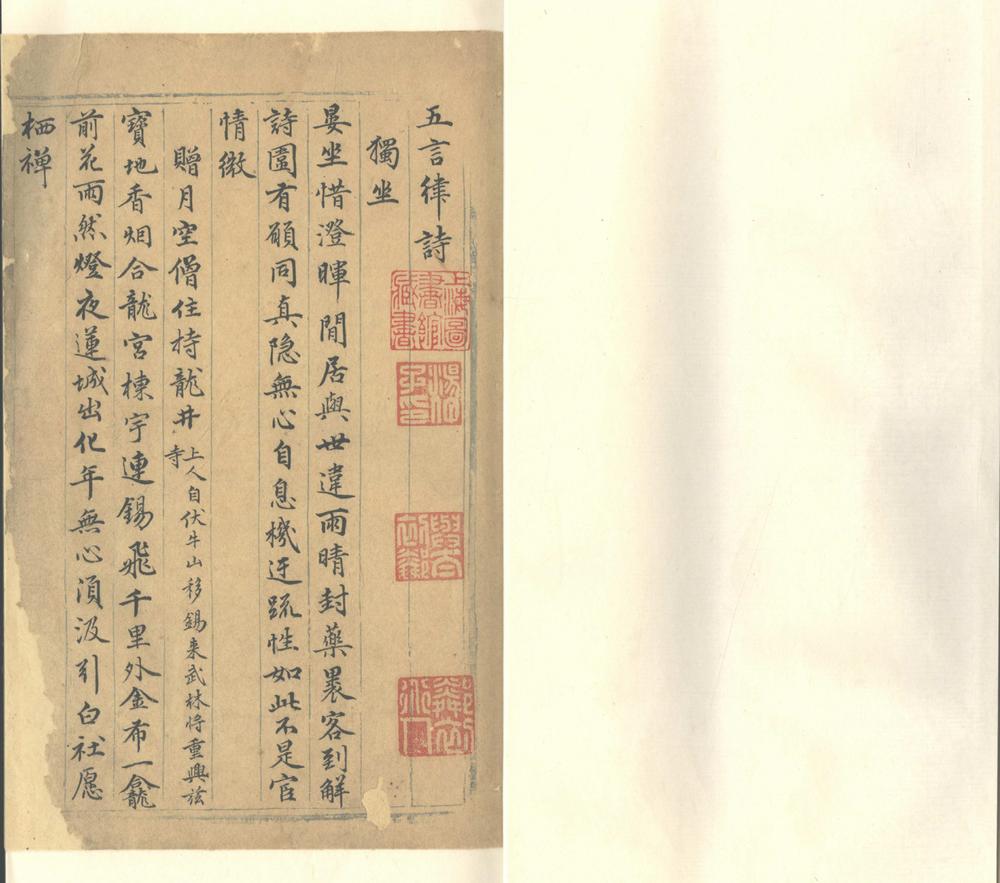 五言律詩
獨坐
晏坐惜澄暉閒居與世違雨晴封藥裹客到解
詩圍有願同真隐無心自息機迂疏性如此不是宦
情微
贈月空僧住持龍井上人自伏牛山移錫来武林将重興兹寺
寶地香烟合龍宮棟宇連錫飛千里外金布一龕
前花雨然燈夜蓮城出化年無心湏汲引白社愿
栖禅
上海圖書館藏書